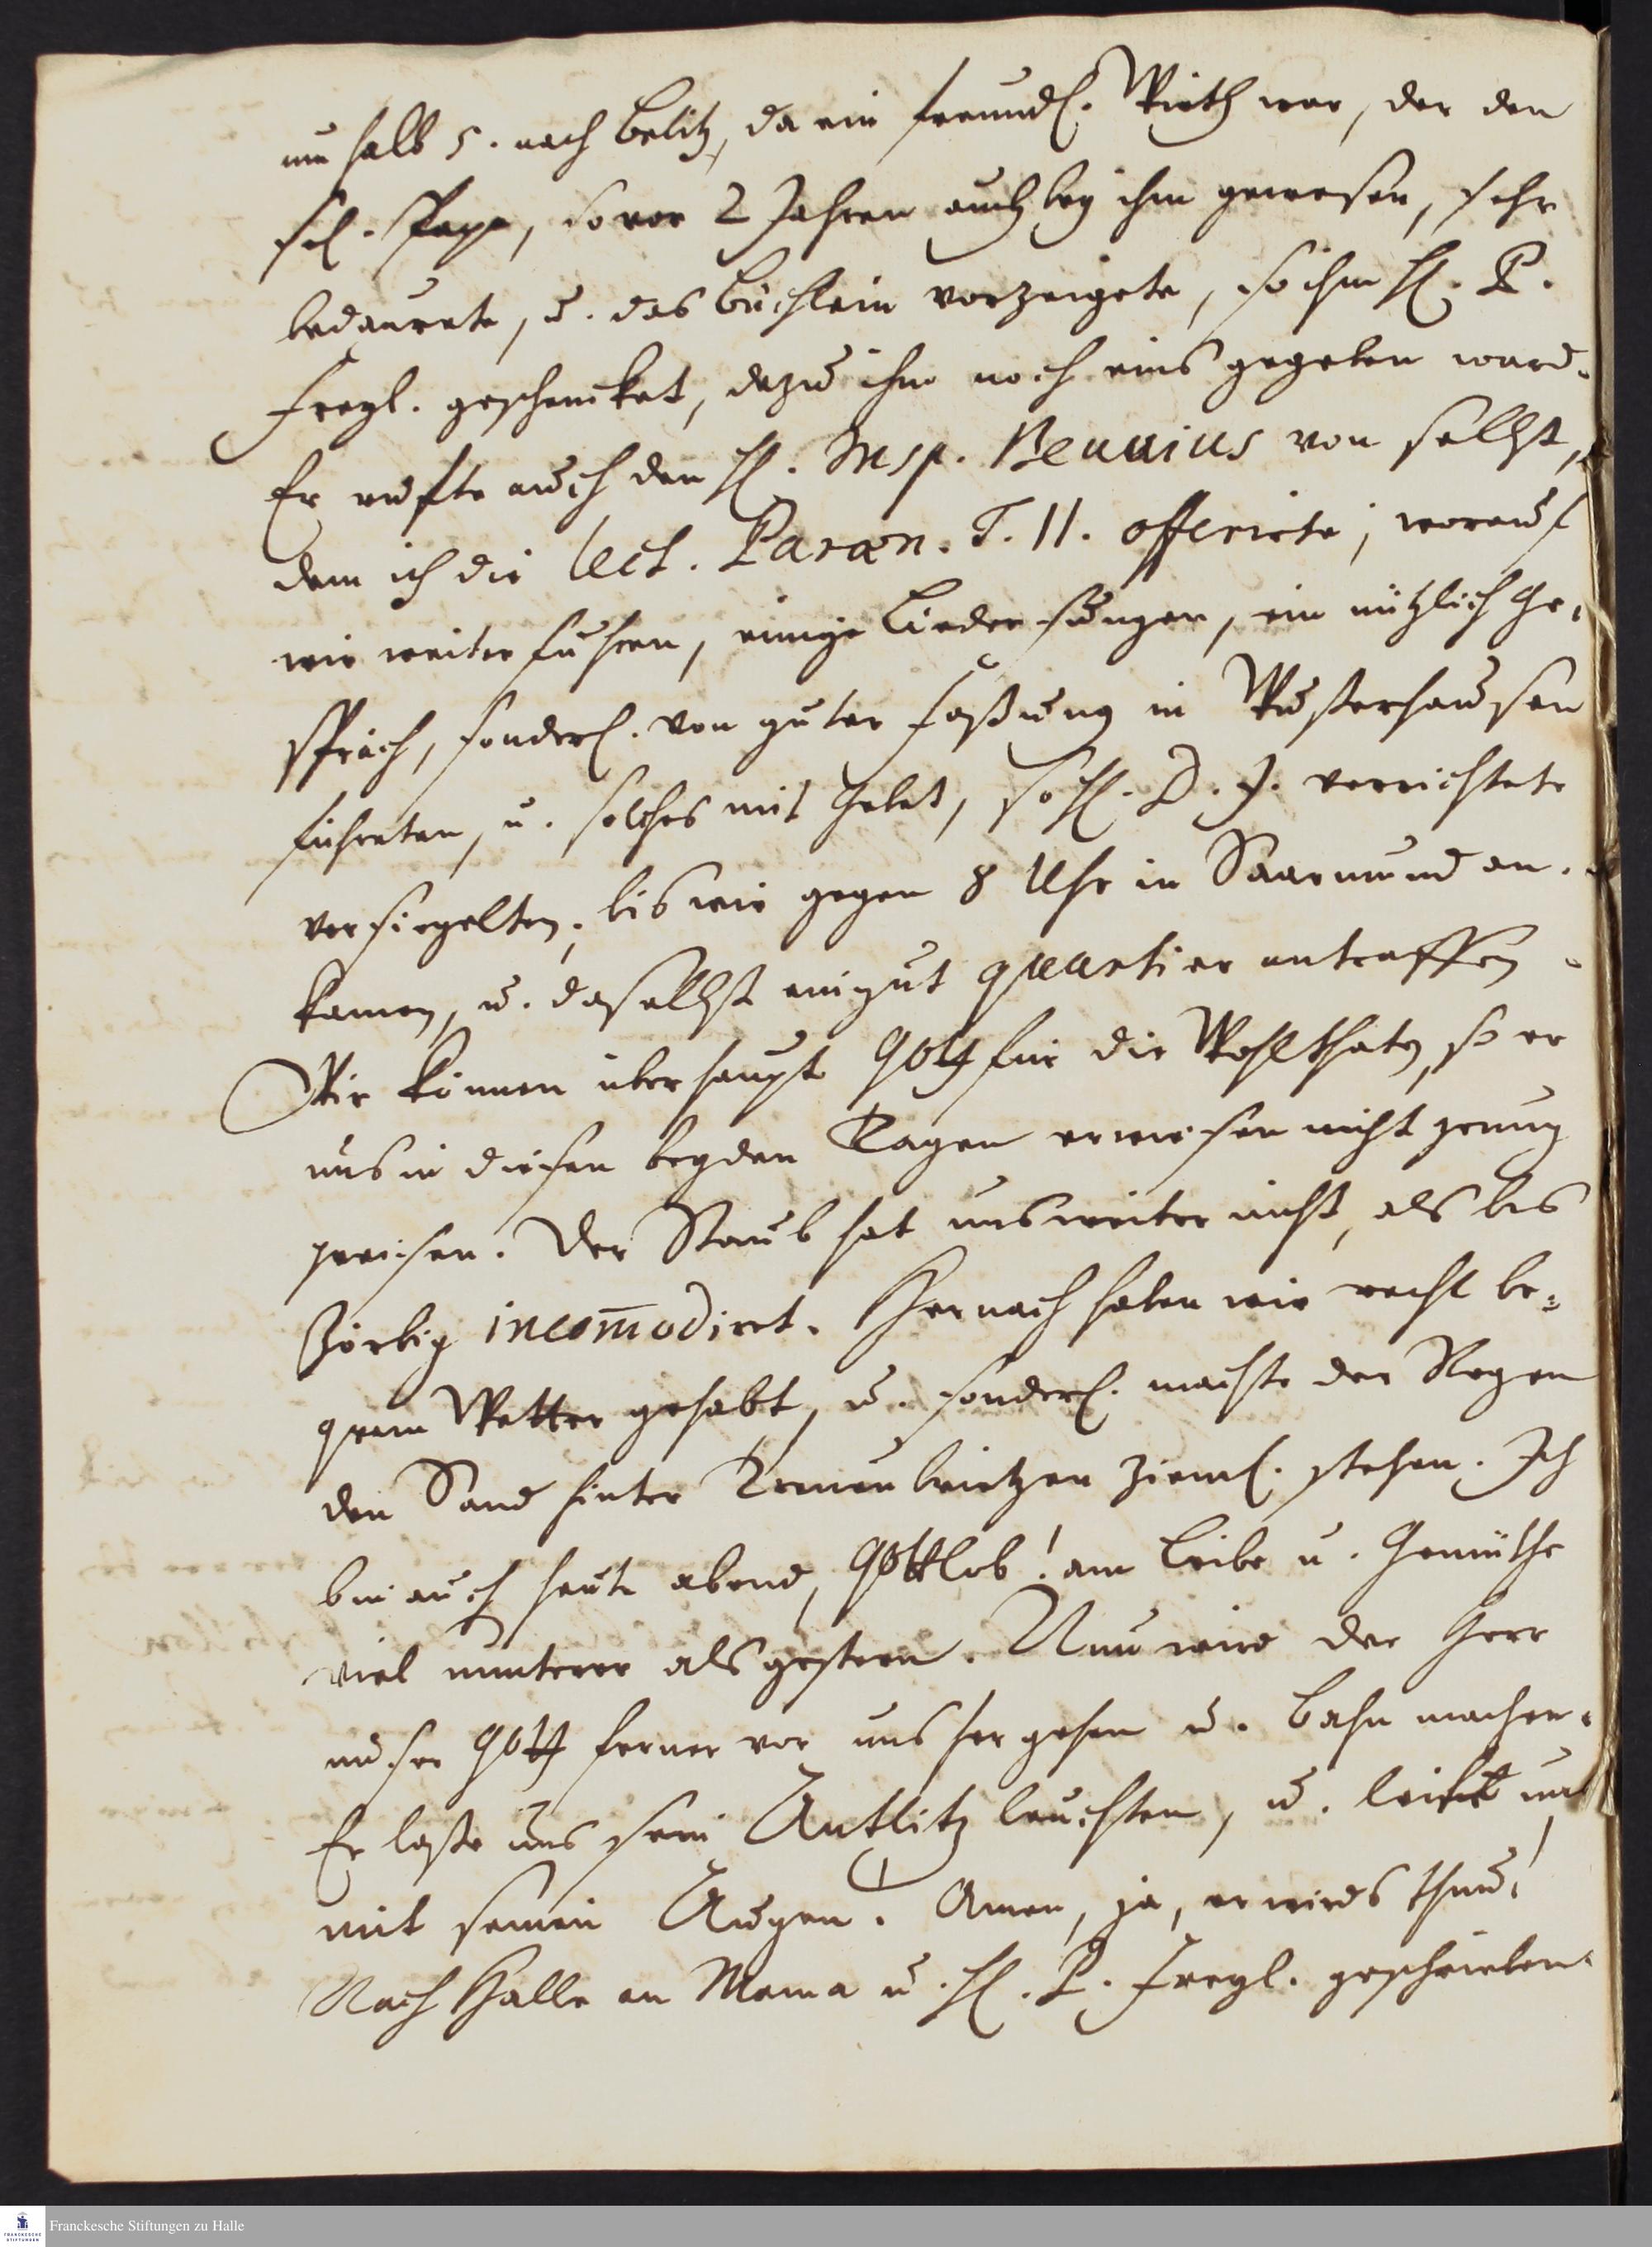 um halb 5. nach Belitz, da ein freundl. Wirth war, der den
sel. Papa, so vor 2 Jahren auch bey ihm gewesen, sehr
bedaurete, u. das Büchlein vorzeigete, so ihm H. P.
Freyl. geschencket, dazu ihm noch eins gegeben ward.
Er rufte auch den H. Insp. Beuuius von selbst,
dem ich die lect. Paraen. T. II. offerirte, worauf
wir weiter fuhren, einige Lieder sungen, ein nützlich Ge-
spräch, sonderl. von guter Faßung in Wusterhausen
führeten, u. solches mit Gebet, so H. D. J. verrichtete
versiegelten, bis wir gegen 8 Uhr in Saarmund an-
kamen, u. daselbst ein gut quartier antraffen.
Wir können überhaupt Gott für die Wohlthaten, so er
uns in diesen beyden Tagen erwiesen nicht genug
preisen. Der Staub hat uns weiter nicht, als bis
Zörbig incom̄odiret. Hernach haben wir recht be-
quem Wetter gehabt, u. sonderl. machte der Regen
den Sand hinter Treuenbrietzen zieml. stehen. Ich
bin auch heute abend, Gottlob! am Leibe u. Gemüthe
viel munterer als gestern. Nun wird der Herr
unser Gott ferner vor uns her gehen u. Bahn machen.
Er laße uns sein Antlitz leuchten, u. leite uns
mit seinen Augen. Amen, ja, er wirds thun!
Nach Halle an Mama u. H. P. Freyl. geschrieben.
Franckesche Stiftungen zu Halle